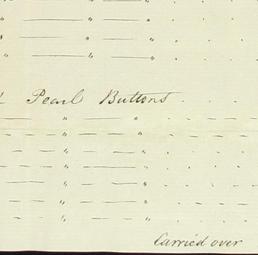 Pearl Buttons
Carried over